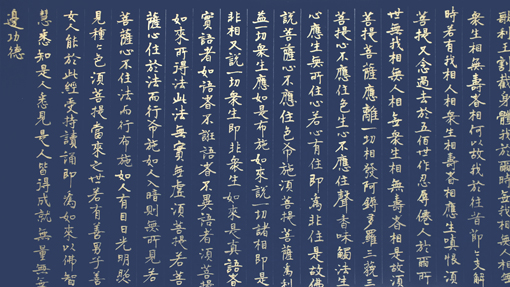 利王割截身體我於爾時無我相無人相無
眾生相無壽者相何以故我於往昔節々支解
時若有我相人相眾生相壽者相應生嗔恨須
菩提又念過去於五佰世作忍辱僊人於爾所
世無我相無人相無眾生相無壽者相是故須
菩提菩薩應離一切相發阿耨多羅三藐三
菩提心不應住色生心不應住聲香味觸法生
心應生無所住心若心有住即為非住是故佛
說菩薩心不應住色布施須菩提菩薩為利
益一切眾生應如是布施如來說一切諸相即是
非相又說一切眾生即非眾生如來是真語者
實語者如語者不誑語者不異語者須菩提
如來所得法此法無實無虛須菩提若菩
薩心住於法而行布施如人入暗則無所見若
菩薩心不住法而行布施如人有目日光明照
見種々色須菩提當來之世若有善男子善
女人能於此經受持讀誦即為如來以佛智
慧悉知是人悉見是人皆得成就無量無
邊功德